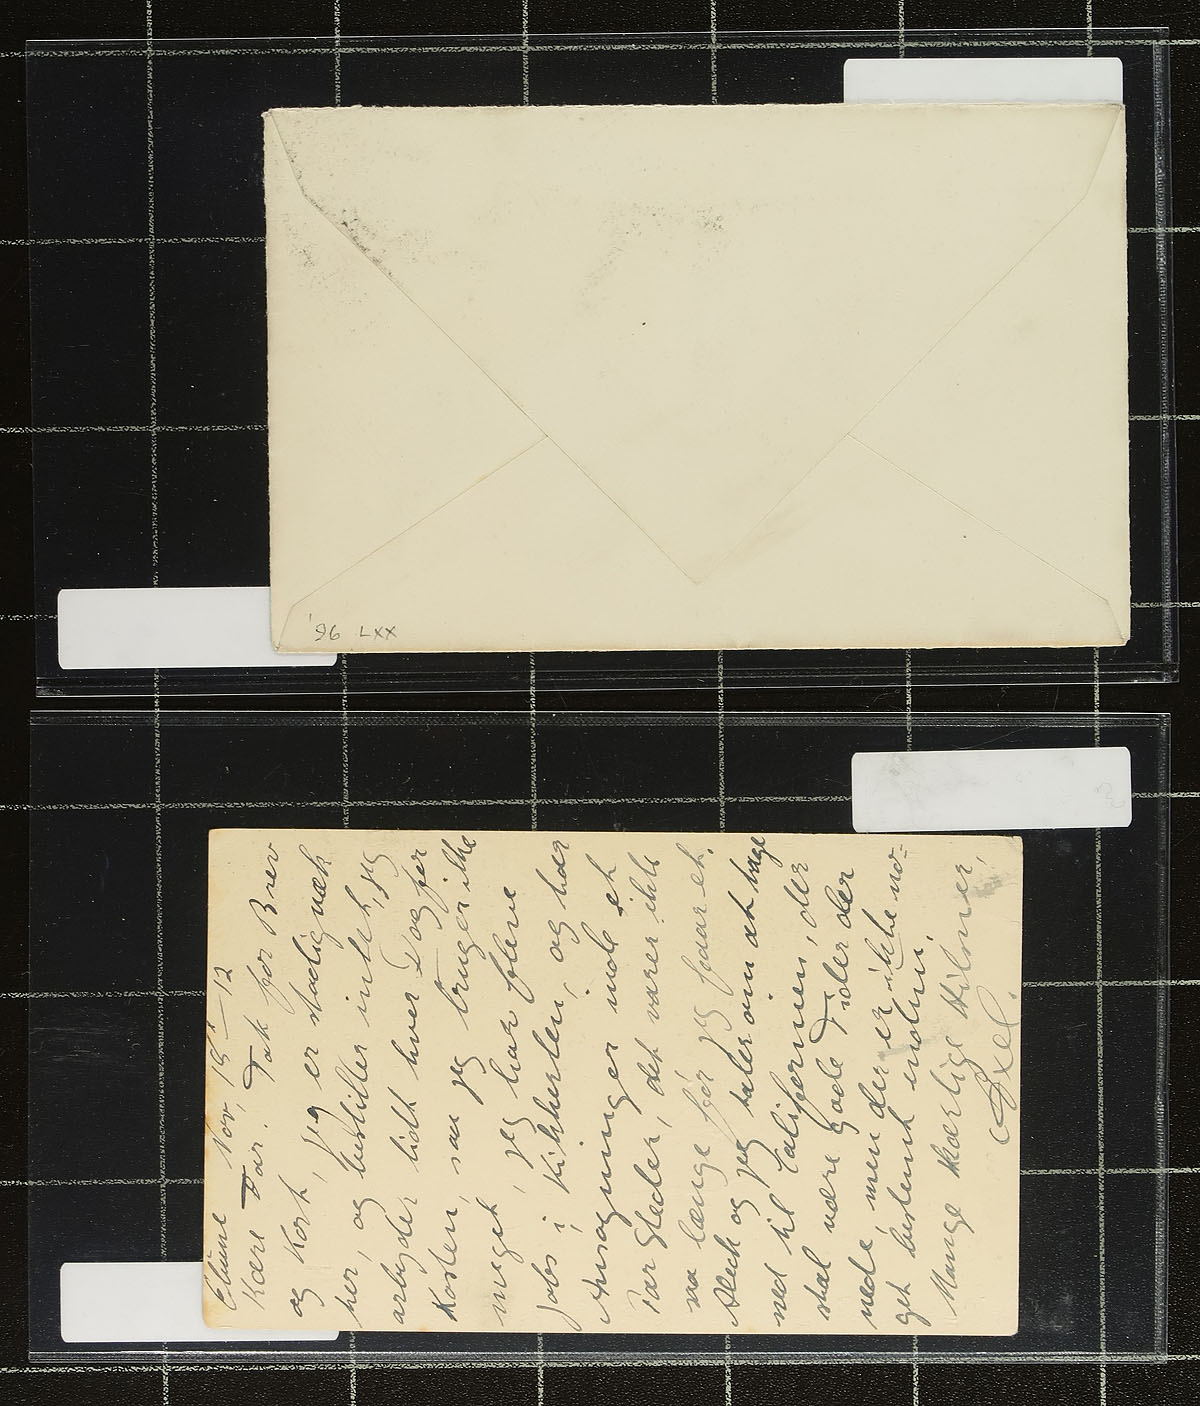 '96 LXX
Nov 19 12
Kære Far. Tak for Brev
og Kort, jeg er stadig væk
her, og bestiller intet, jeg
arbejder lidt hver Dag for
Kosten, saa jeg bruger ikke
meget, jeg har flere
Jobs i Kikkerten, og har
Ansøgninger inde et
Par Steder, det varer ikke
saa længe før jeg faar et.
Aleck og jeg taler om at tage
ned til Californien, der
skal være gode Tider der
nede, men der er ikke no-
get bestemt endnu.
Mange kærlige Hilsner,
Axel.